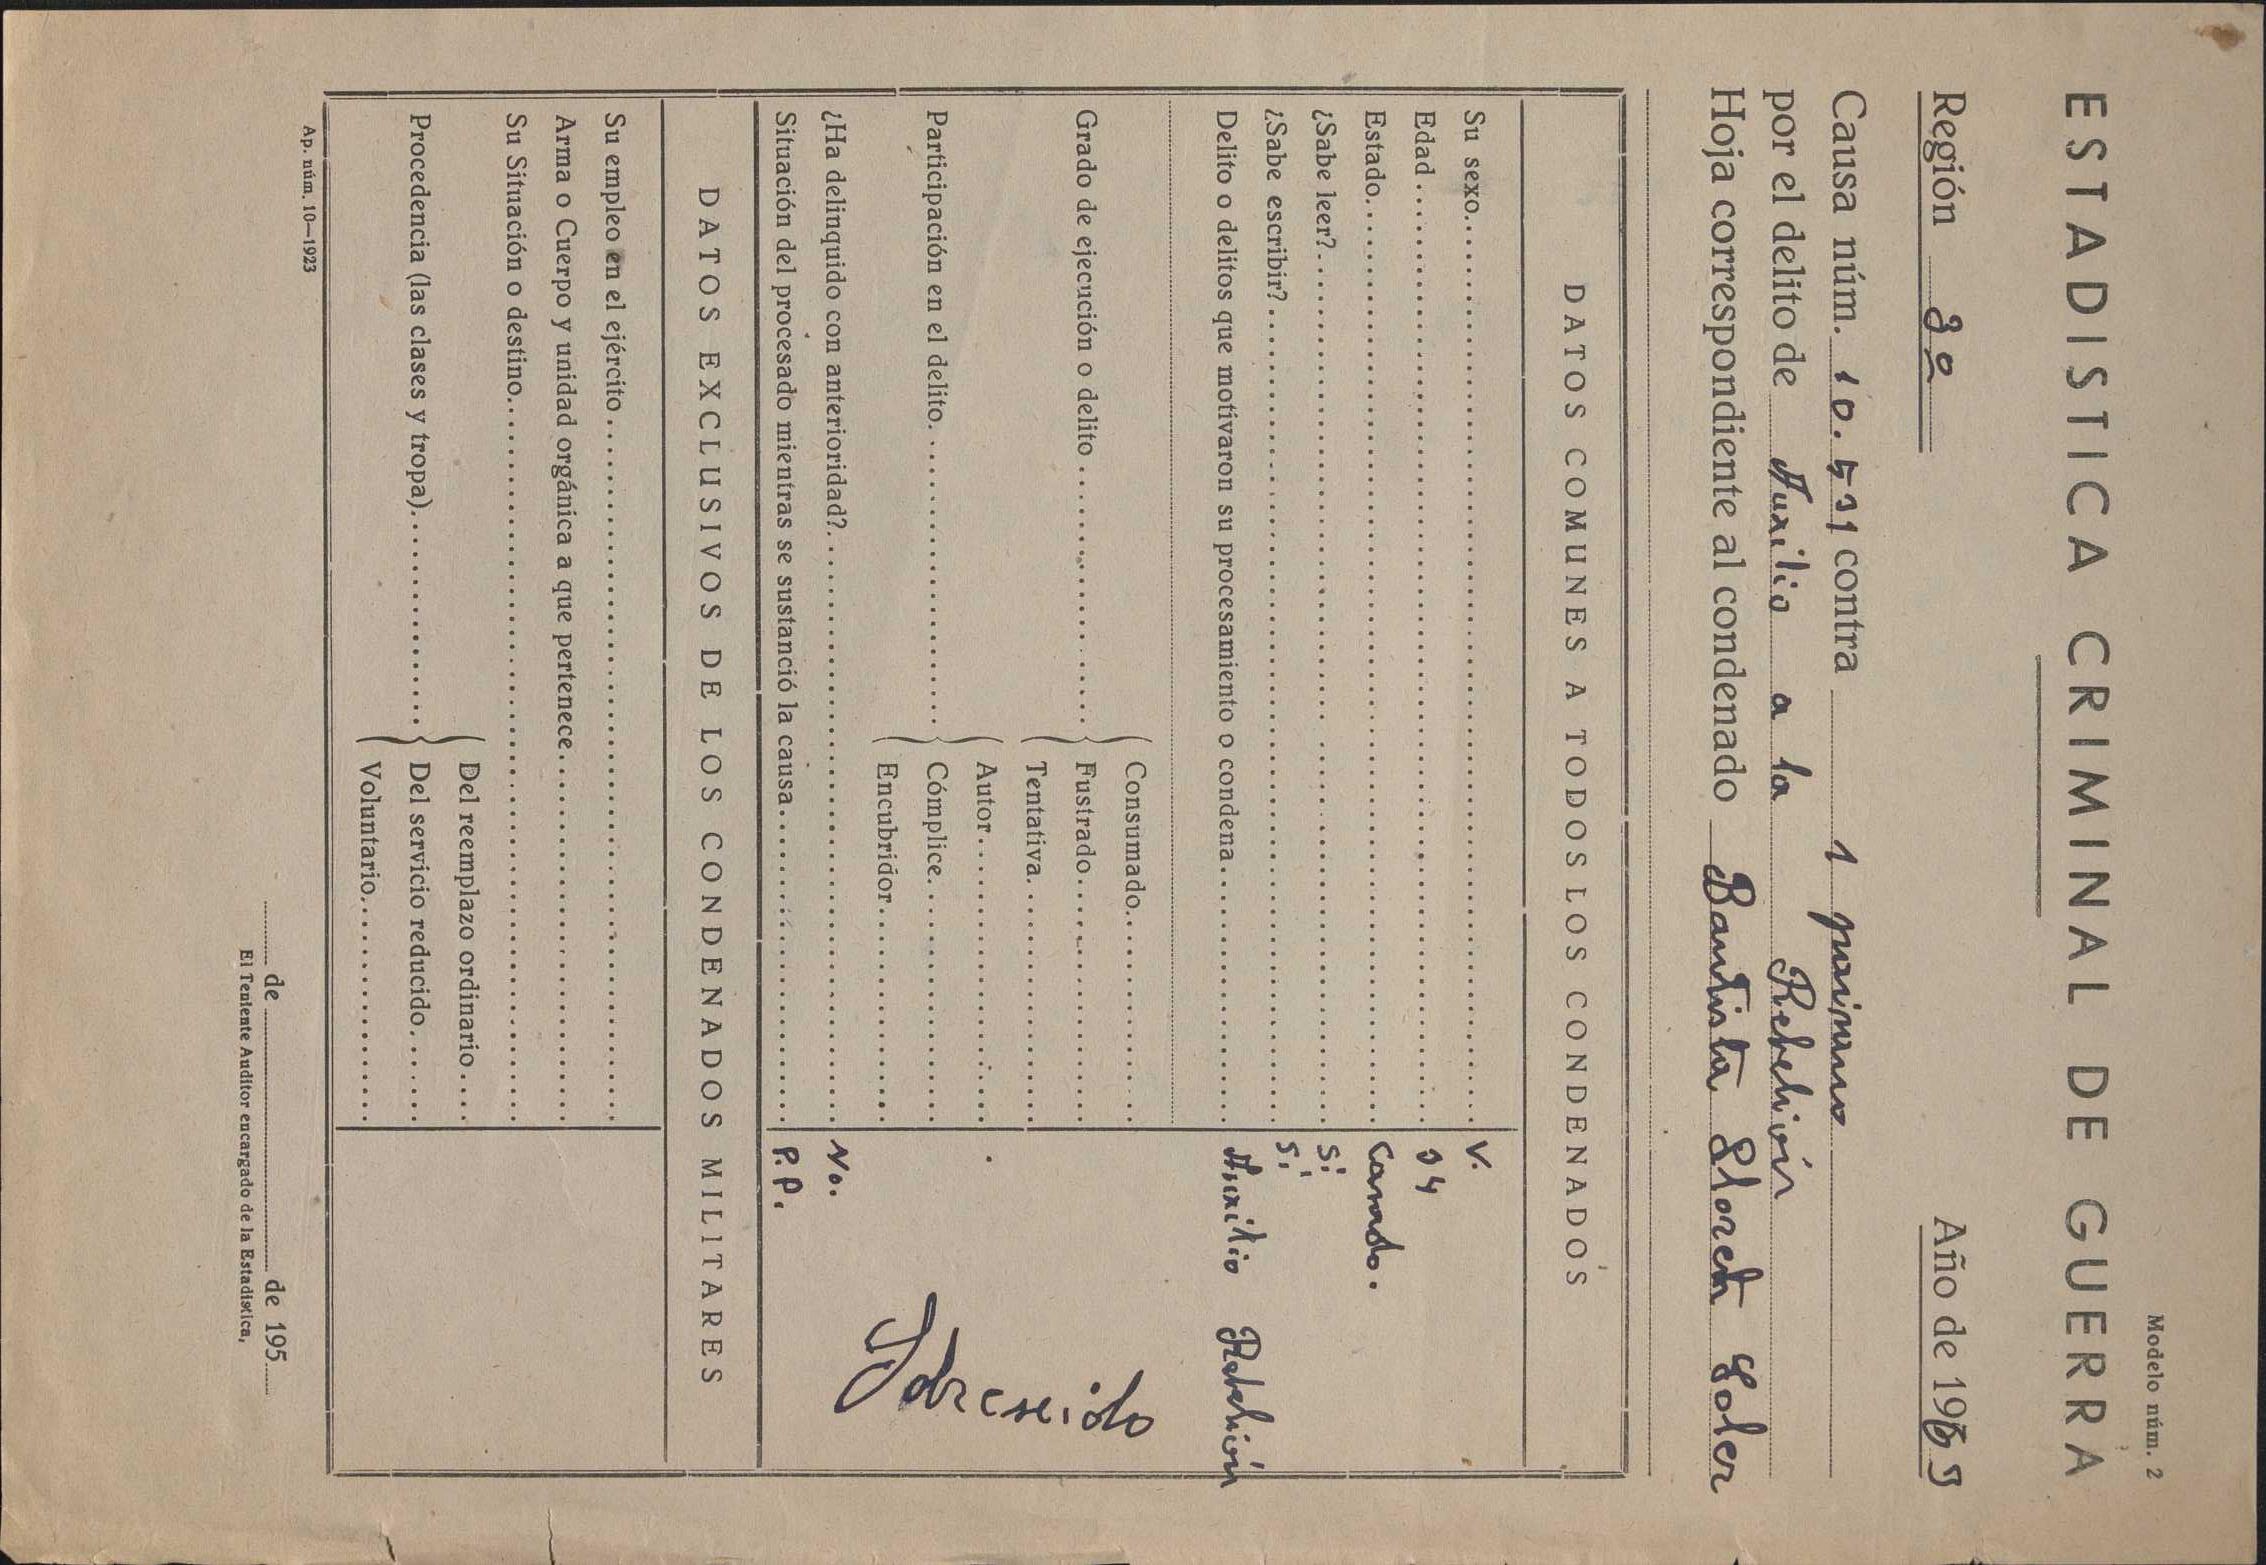 Modelo núm. 2
ESTADISTICA CRIMINAL DE GUERRA
Región 3ª Año de 19
Causa núm. 10.531 contra 1 paisano
por el delito de Auxilio a la Rebelión
Hoja correspondiente al condenado Bautista Lloret Soler
DATOS COMUNES A TODOS LOS CONDENADOS
Su sexo V.
Edad 34
Estado Casado.
¿Sabe leer? Si
¿Sabe escribir? Si
Delito o delitos que motivaron su procesamiento o condena Auxilio Rebelión
Grado de ejecución o delito
Consumado
Fustrado
Tentativa
Participación en el delito
Autor
Cómplice
Encubridor
¿Ha delinquido con anterioridad? No.
Situación del procesado mientras se sustanció la causa P.P.
DATOS EXCLUSIVOS DE LOS CONDENADOS MILITARES
Su empleo en el ejército
Arma o Cuerpo y unidad orgánica a que pertenece
Su Situación o destino
Procedencia (las clases y tropa)
Del reemplazo ordinario
Del servicio reducido
Voluntario
Ap. núm. 10—1923
de de 195
El Teniente Auditor encargado de la Estadística,